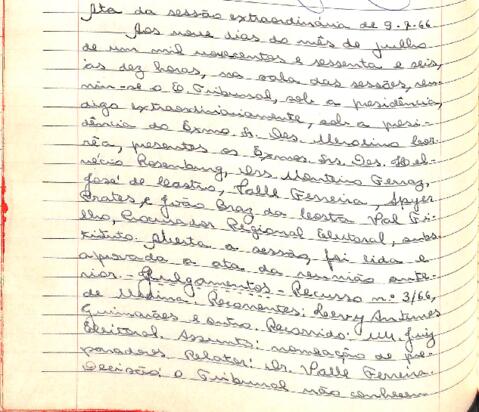 Ata da sessão extraordinária de 9-7-66.
Aos nove dias do mês de julho
de um mil novecentos e sessenta e seis,
às dez horas, na sala das sessões, reu-
niu-se o E. Tribunal, sob a presidência,
digo extraordinariamente, sob a presi-
dência do Exmo. Sr. Des. Merolino Cor-
rêa, presentes os Exmos. Srs. Des. Hel-
vécio Rosenburg, Drs. Monteiro Ferraz,
José de Castro, Valle Ferreira, Spyer
Prates, e João Braz da Costa Val Fi-
lho, Procurador Regional Eleitoral, subs-
tituto. Aberta a sessão, foi lida e
aprovada a ata da reunião ante-
rior. - Julgamentos - Recurso nº 3/66,
de Medina. Recorrentes: Antunes
Guimarães e outro. Recorrido: M. Juiz
Eleitoral. Assunto: nomeação de pre-
paradores. Relator: Dr. Valle Ferreira.
Decisão: O Tribunal não conheceu